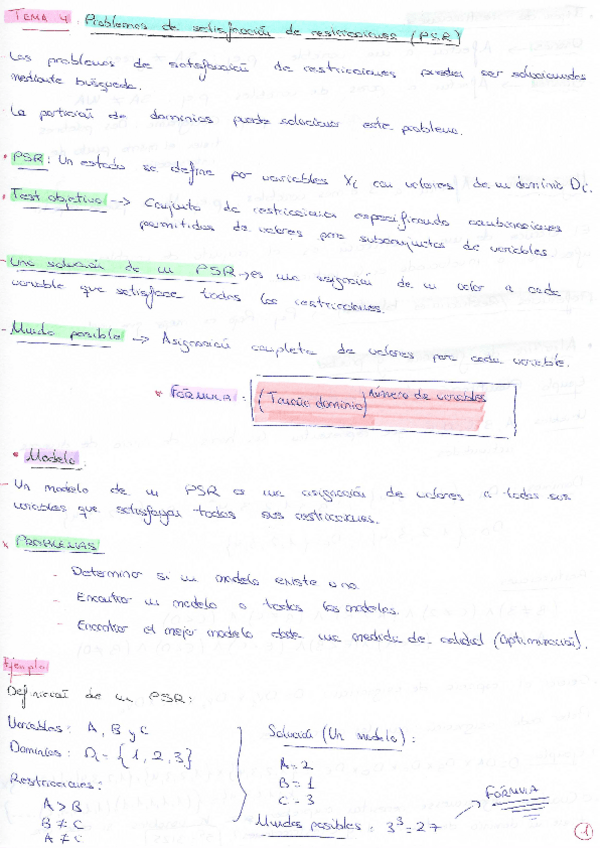 TEMA 4. Problemas de satisfacción de restricciones (PSR)
- Los problemas de satisfacción de restricciones pueden ser solucionados
mediante búsqueda.
- La partición de dominios puede solucionar este problema.
* PSR: Un estado se define por variables Xi con valores de un dominio Di.
* Test objetivo --> Conjunto de restricciones especificando combinaciones
permitidas de valores para subconjuntos de variables
- Una solución de un PSR -> es una asignación de un valor a cada
variable que satisface todas las restricciones.
- Mundo posible -> Asignación completa de valores por cada variable.
* FÓRMULA: (Tamaño dominio)^número de variables
* Modelo.
- Un modelo de un PSR es una asignación de valores a todas sus
variables que satisfagan todas sus restricciones.
* PROBLEMAS
- Determinar si un modelo existe o no.
- Encontrar un modelo o todos los modelos.
- Encontrar el mejor modelo dada una medida de calidad (Optimización).
Ejemplo
Definición de un PSR:
Variables: A, B y C
Dominios: Di = {1, 2, 3}
Restricciones:
A > B
B ≠ C
A ≠ C
Solución (Un modelo):
A = 2
B = 1
C = 3
Mundos posibles = 3³ = 27
FÓRMULA
1